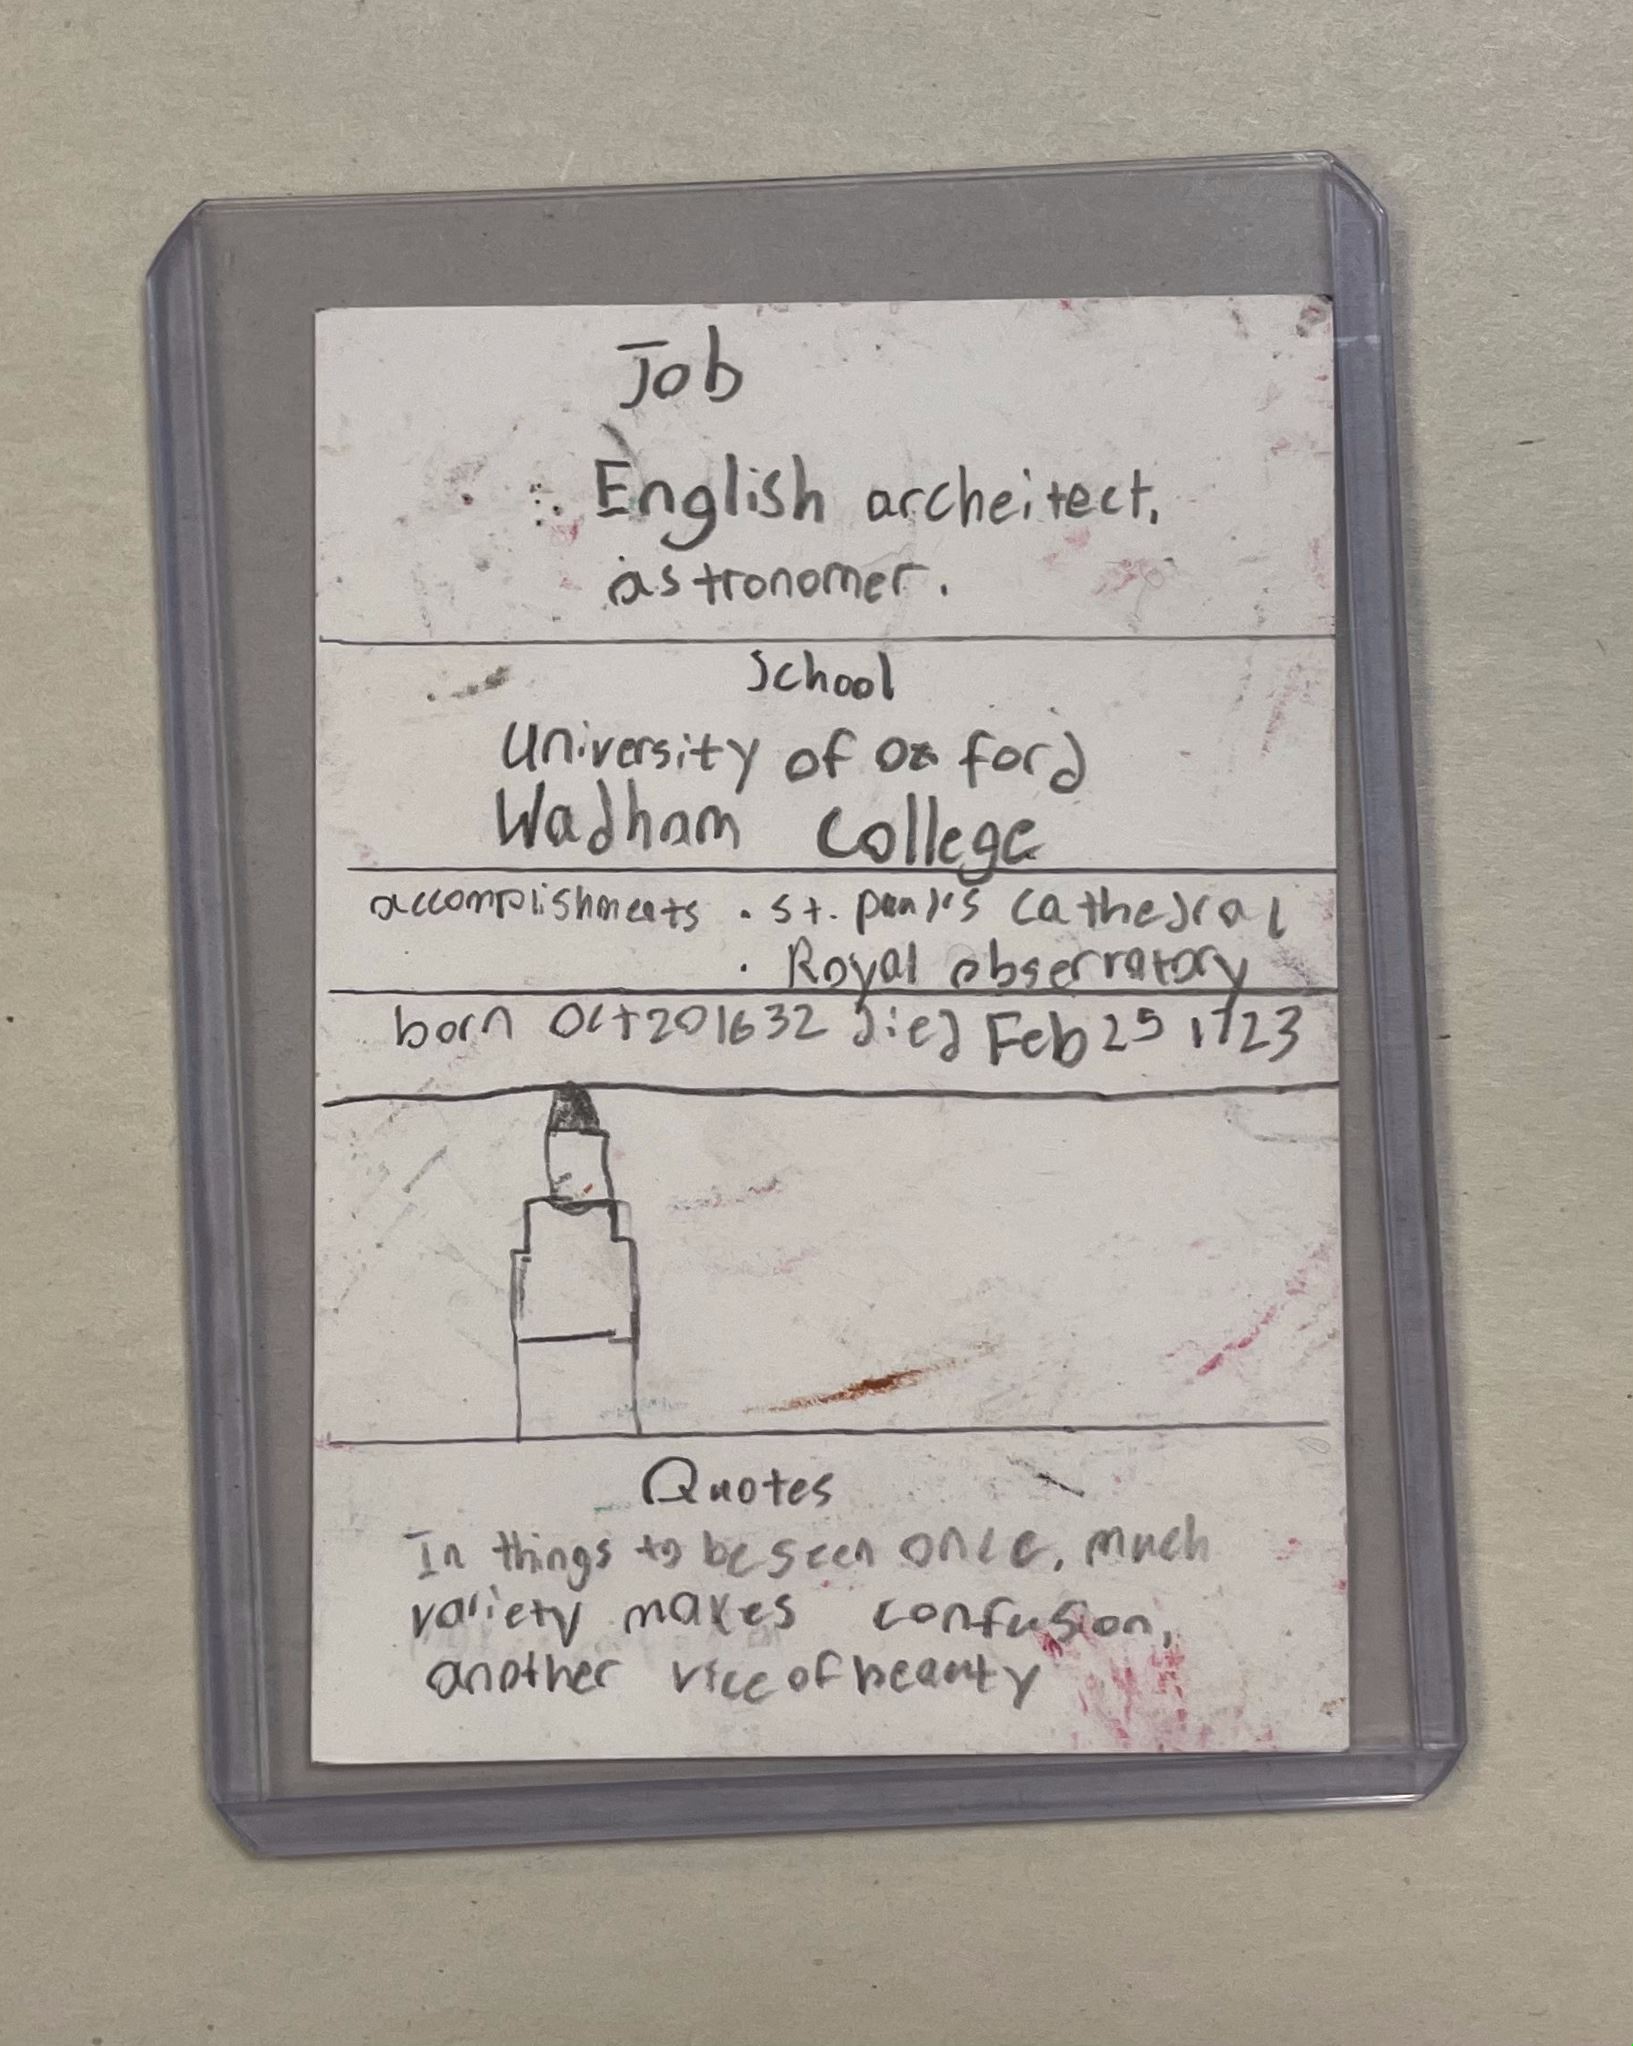 Job
English archeitect,
astronomer.
School
University of Oxford
Wadham College
accomplishments . St. Paul's Cathedral
. Royal observratory
born Oct 20 1632 died Feb 25 1723
Quotes
In things to be seen once, much
variety makes confusion,
another vice of beauty